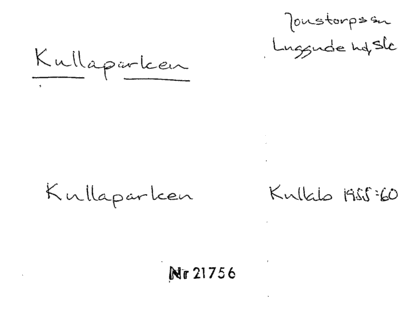 Jonstorps sn
Kullaparken
Luggude hd, Sk
Kullaparken
Kullabo 1955:60
Nr 21756